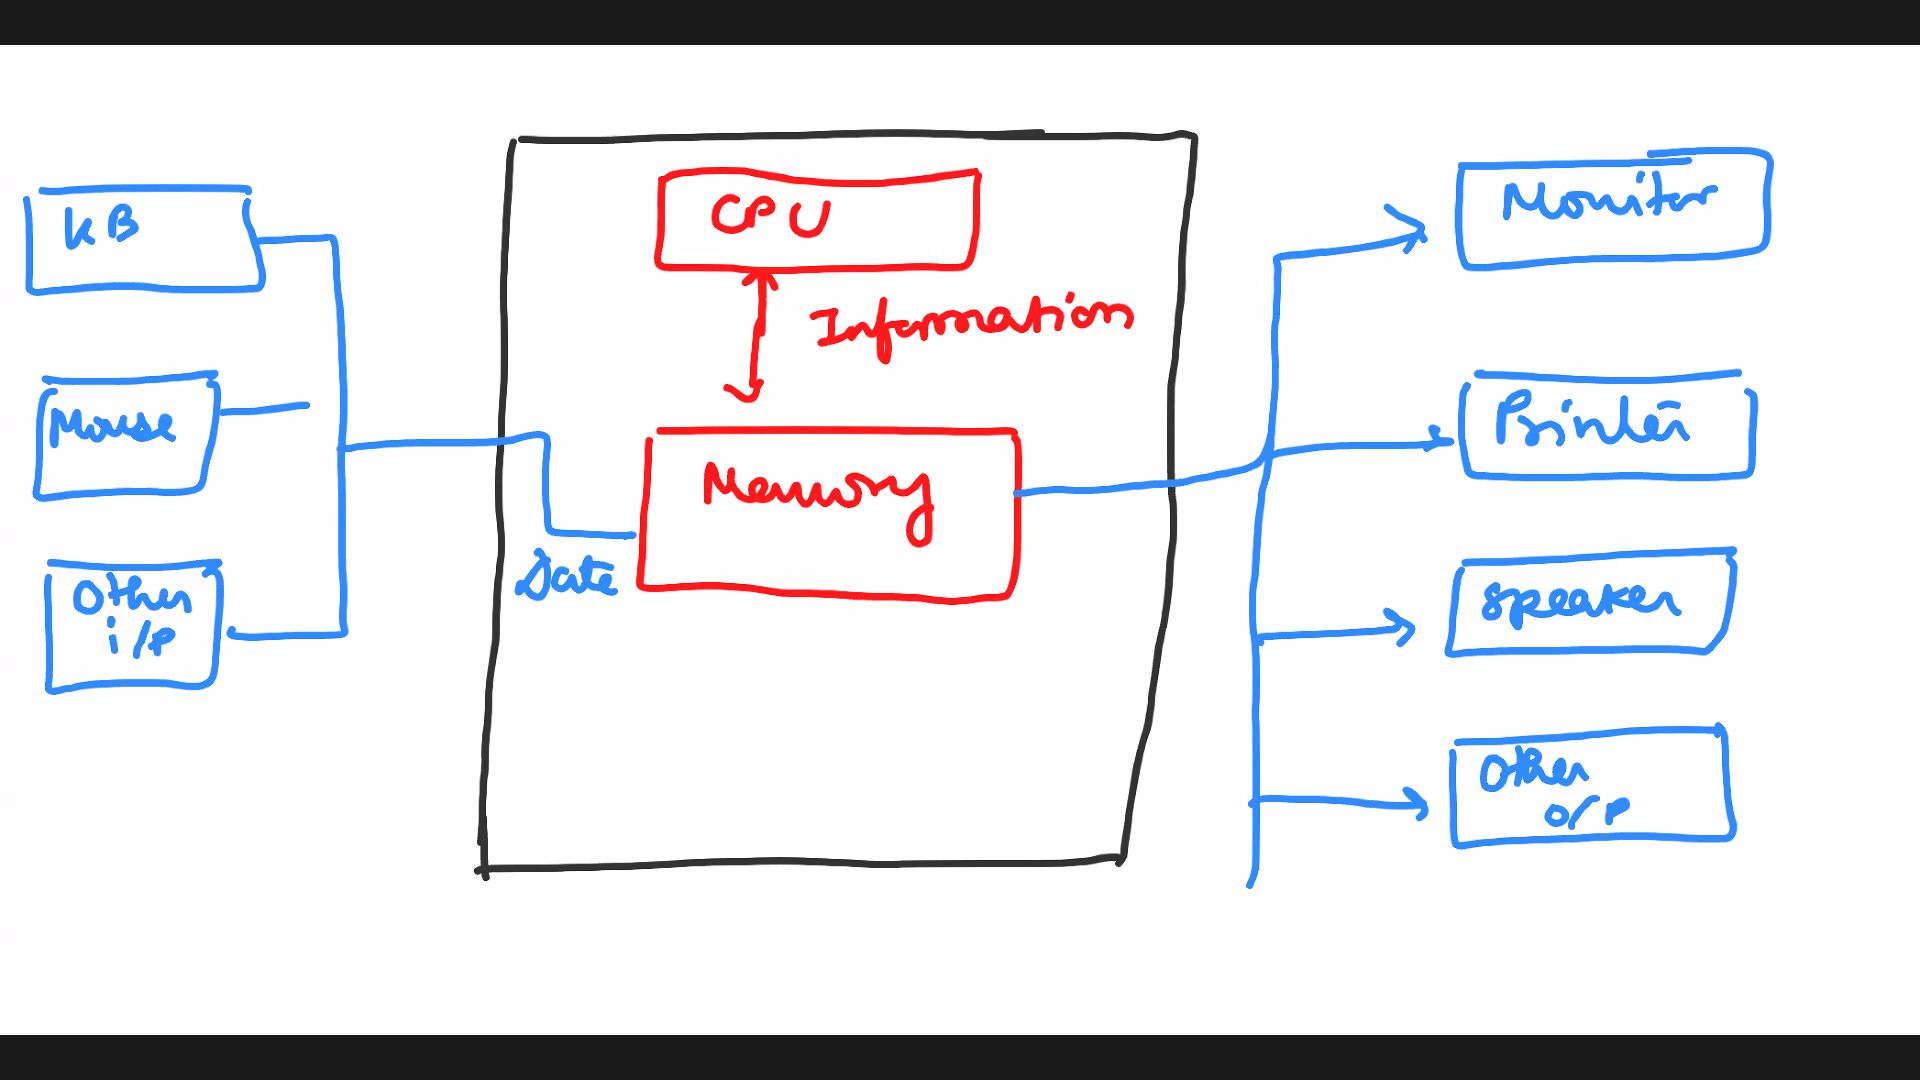 KB
Mouse
Other
i/p
CPU
Information
Memory
Data
Monitor
Printer
Speaker
Other
O/P